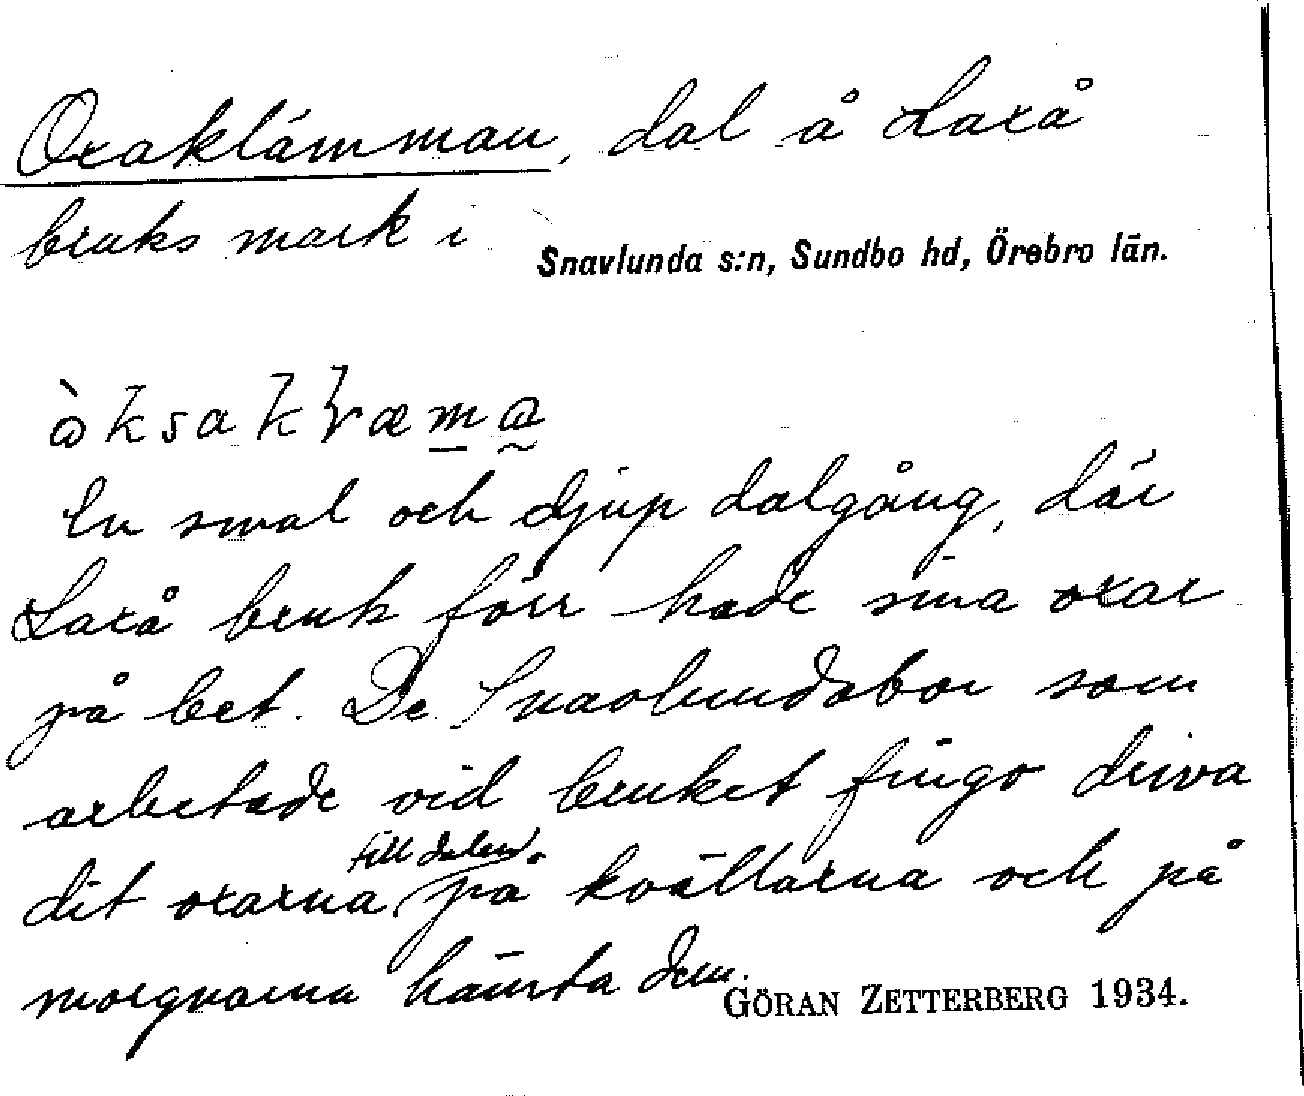 Oxaklämman, dal å Laxå
bruks mark i Snavlunda s:n, Sundbo hd, Örebro län.
En smal och djup dalgång, där
Laxå bruk förr hade sina oxar
på bet. De Snavlundabor som
arbetade vid bruket fingo driva
till dalen
dit oxarna på kvällarna och på
morgnarna hämta dem.
GÖRAN ZETTERBERG 1934.